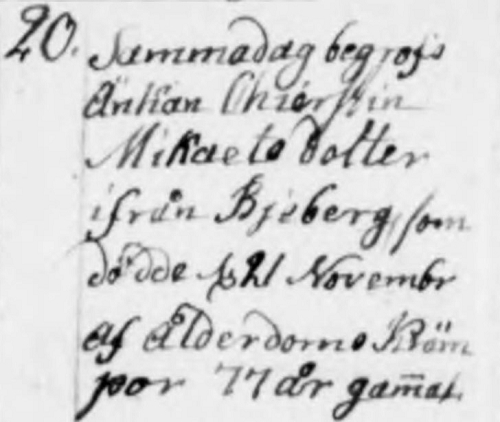 20. Sammadag begrofs
Änkan Chierstin
Mikaels dotter
ifrån Bjeberg, som
dödde d 21 Novembr
af Ålderdoms Kröm
por 77 år gam̅al.